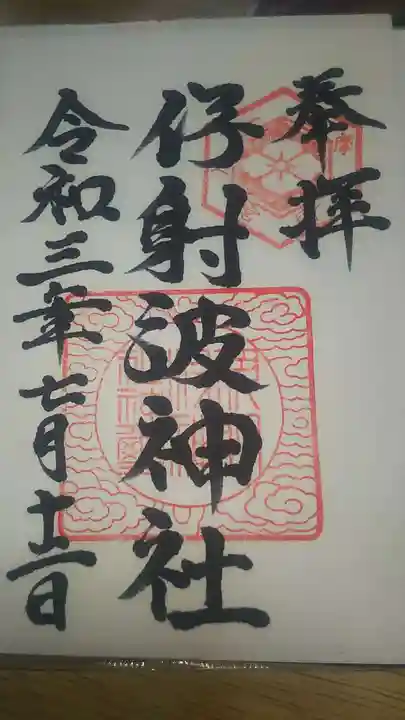 奉拝
伊射波神社
令和三年七月十二日